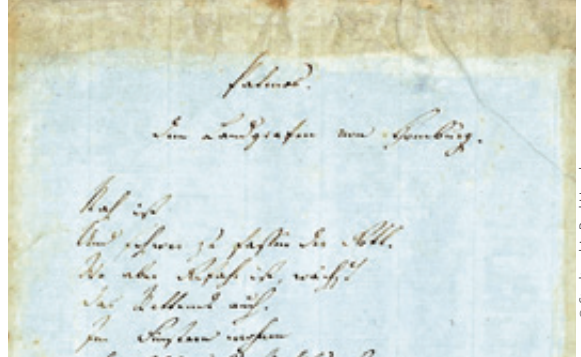 Patmos.
Dem Landgrafen von Homburg.
Nah ist
Und schwer zu fassen der Gott.
Wo aber Gefahr ist, wächst
Das Rettende auch.
Im Finstern wohnen